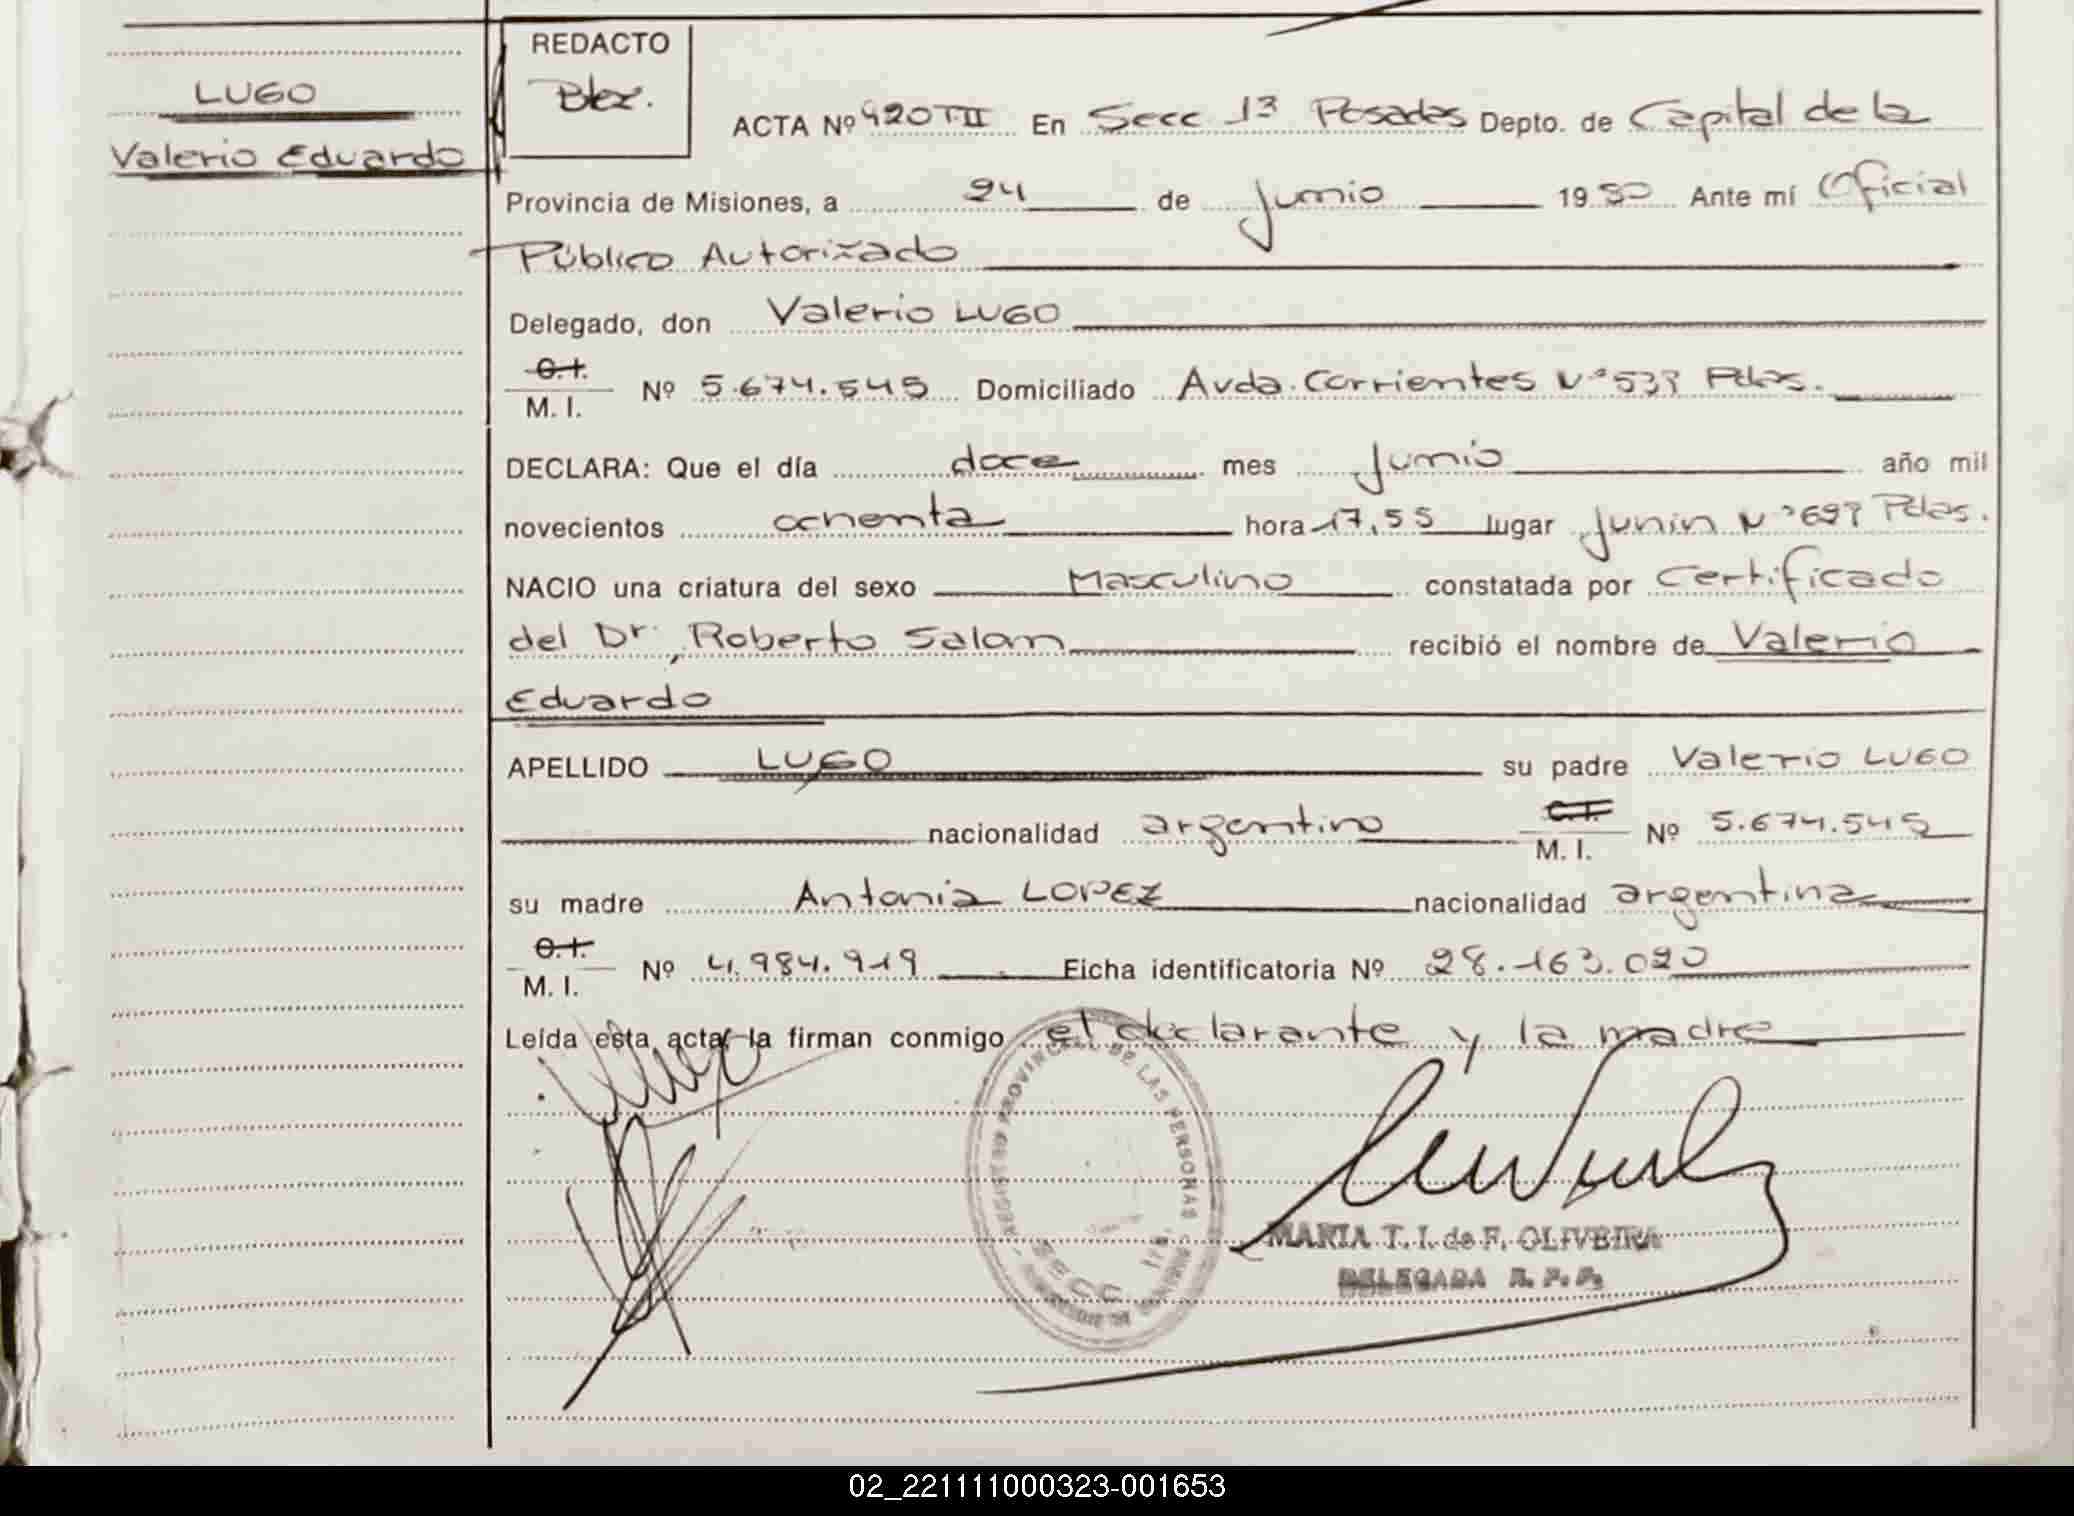 LUGO
Valerio Eduardo
REDACTO
ACTA Nº 420 TII En Secc 1ª Posadas Depto. de Capital de la
Provincia de Misiones, a 24 de Junio 1980 Ante mí Oficial
Público Autorizado
Delegado, don Valerio LUGO
C.I.
M. I. Nº 5.674.545 Domiciliado Avda. Corrientes Nº 537 Pdas.
DECLARA: Que el día doce mes Junio año mil
novecientos ochenta hora 17,55 lugar Junín Nº 697 Pdas.
NACIO una criatura del sexo Masculino constatada por Certificado
del Dr. Roberto Salom recibió el nombre de Valerio
Eduardo
APELLIDO LUGO su padre Valerio LUGO
nacionalidad argentino C.I. M. I. Nº 5.674.545
su madre Antonia LOPEZ nacionalidad argentina
C.I.
M. I. Nº 4.984.919 Ficha identificatoria Nº 28.163.020
Leída esta acta, la firman conmigo el declarante y la madre
REGISTRO PROVINCIAL DE LAS PERSONAS
SECC
MARIA T. I. de F. OLIVEIRA
DELEGADA R. P. P.
02_221111000323-001653